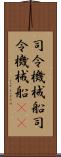 司令機械船司
令機械船